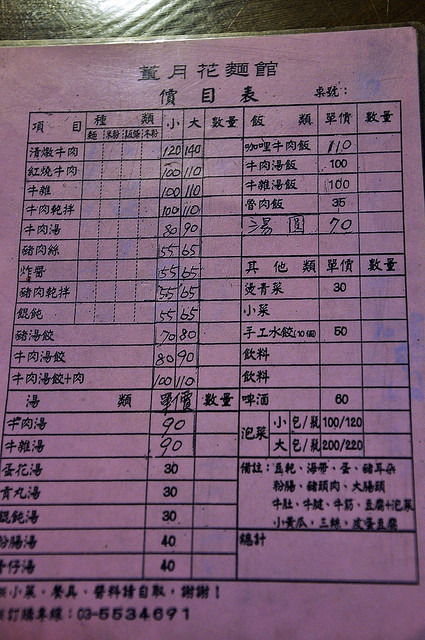 董月花麵館
價目表 桌號：
項目 種類 小 大 數量 飯類 單價 數量
麵 米粉 板條 冬粉
清燉牛肉 120 140 咖哩牛肉飯 110
紅燒牛肉 100 110 牛肉湯飯 100
牛雜 100 110 牛雜湯飯 100
牛肉乾拌 100 110 魯肉飯 35
牛肉湯 80 90 湯圓 70
豬肉絲 55 65
炸醬 55 65 其他類 單價 數量
豬肉乾拌 55 65 燙青菜 30
餛飩 55 65 小菜
豬湯餃 70 80 手工水餃(10個) 50
牛肉湯餃 80 90 飲料
牛肉湯餃+肉 100 110 飲料
湯類 單價 數量 啤酒 60
牛肉湯 90 泡菜 小 包/瓶 100/120
牛雜湯 90 大 包/瓶 200/220
蛋花湯 30 備註：豆乾、海帶、蛋、豬耳朵
貢丸湯 30 粉腸、豬頭肉、大腸頭
餛飩湯 30 牛肚、牛腱、牛筋、豆腐+泡菜
小黃瓜、三絲、皮蛋豆腐
粉腸湯 40 總計
仔湯 40
※小菜、餐具、醬料請自取，謝謝！
※訂購專線：03-5534691